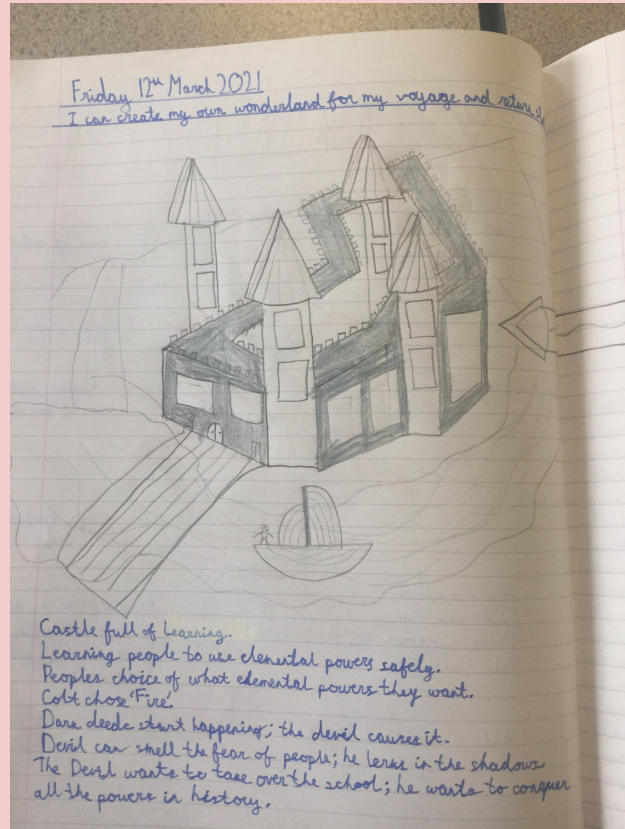 Friday 12th March 2021
I can create my own wonderland for my voyage and return
Castle full of Learning.
Learning people to use elemental powers safely.
Peoples choice of what elemental powers they want.
Colt chose 'Fire'.
Dark deeds start happening; the devil causes it.
Devil can smell the fear of people; he lerks in the shadows.
The Devil wants to take over the school; he wants to conquer
all the powers in history.